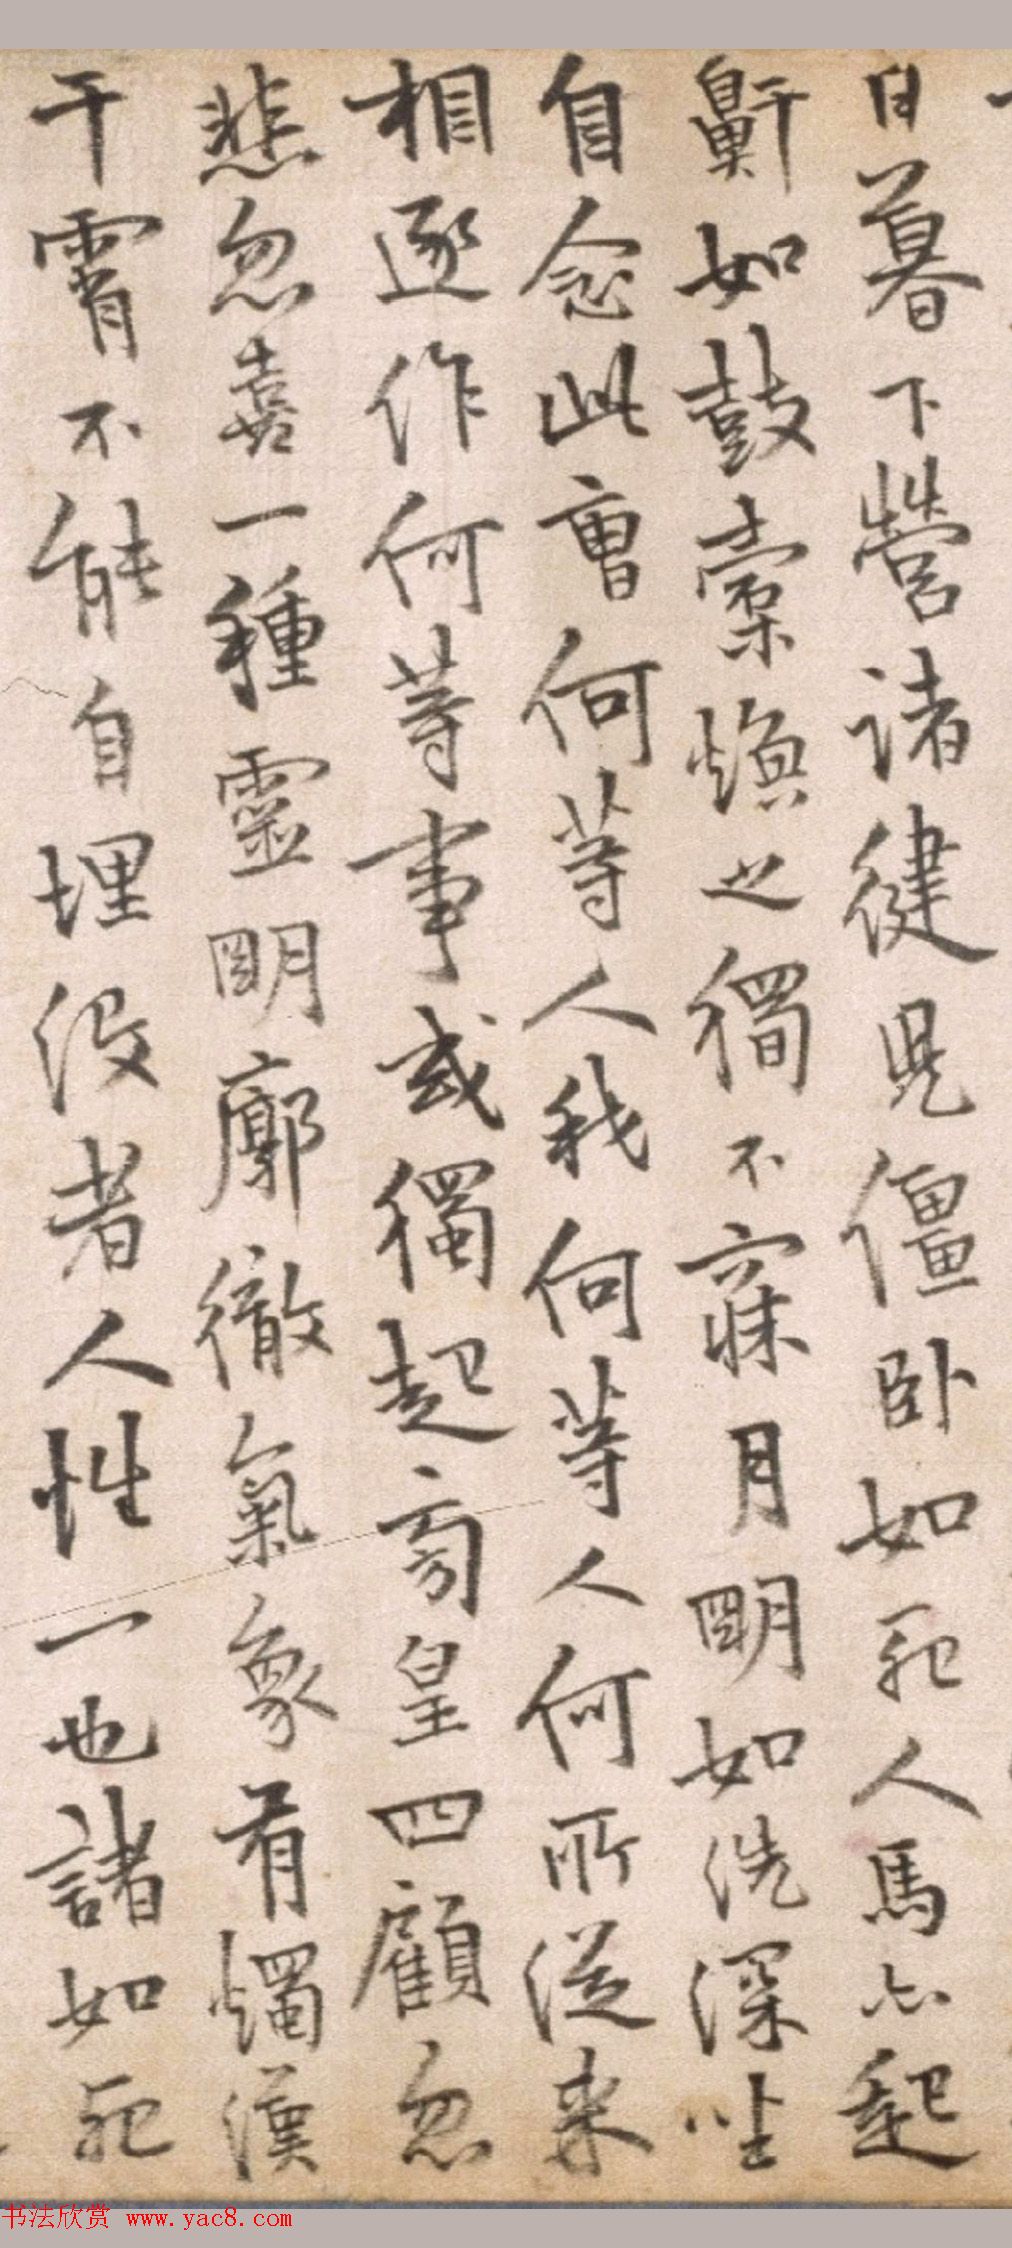 日暮下營諸健児僵卧如死人馬亦起
鼾如鼓橐煥之獨不寐月明如洗深坐
自念此曹何等人我何等人何所從来
相逐作何等事或獨起彷皇四顧忽
悲忽喜一種靈明廓徹氣象有燭漢
干霄不能自埋没者人性一也諸如死
书法欣赏 www.yac8.com